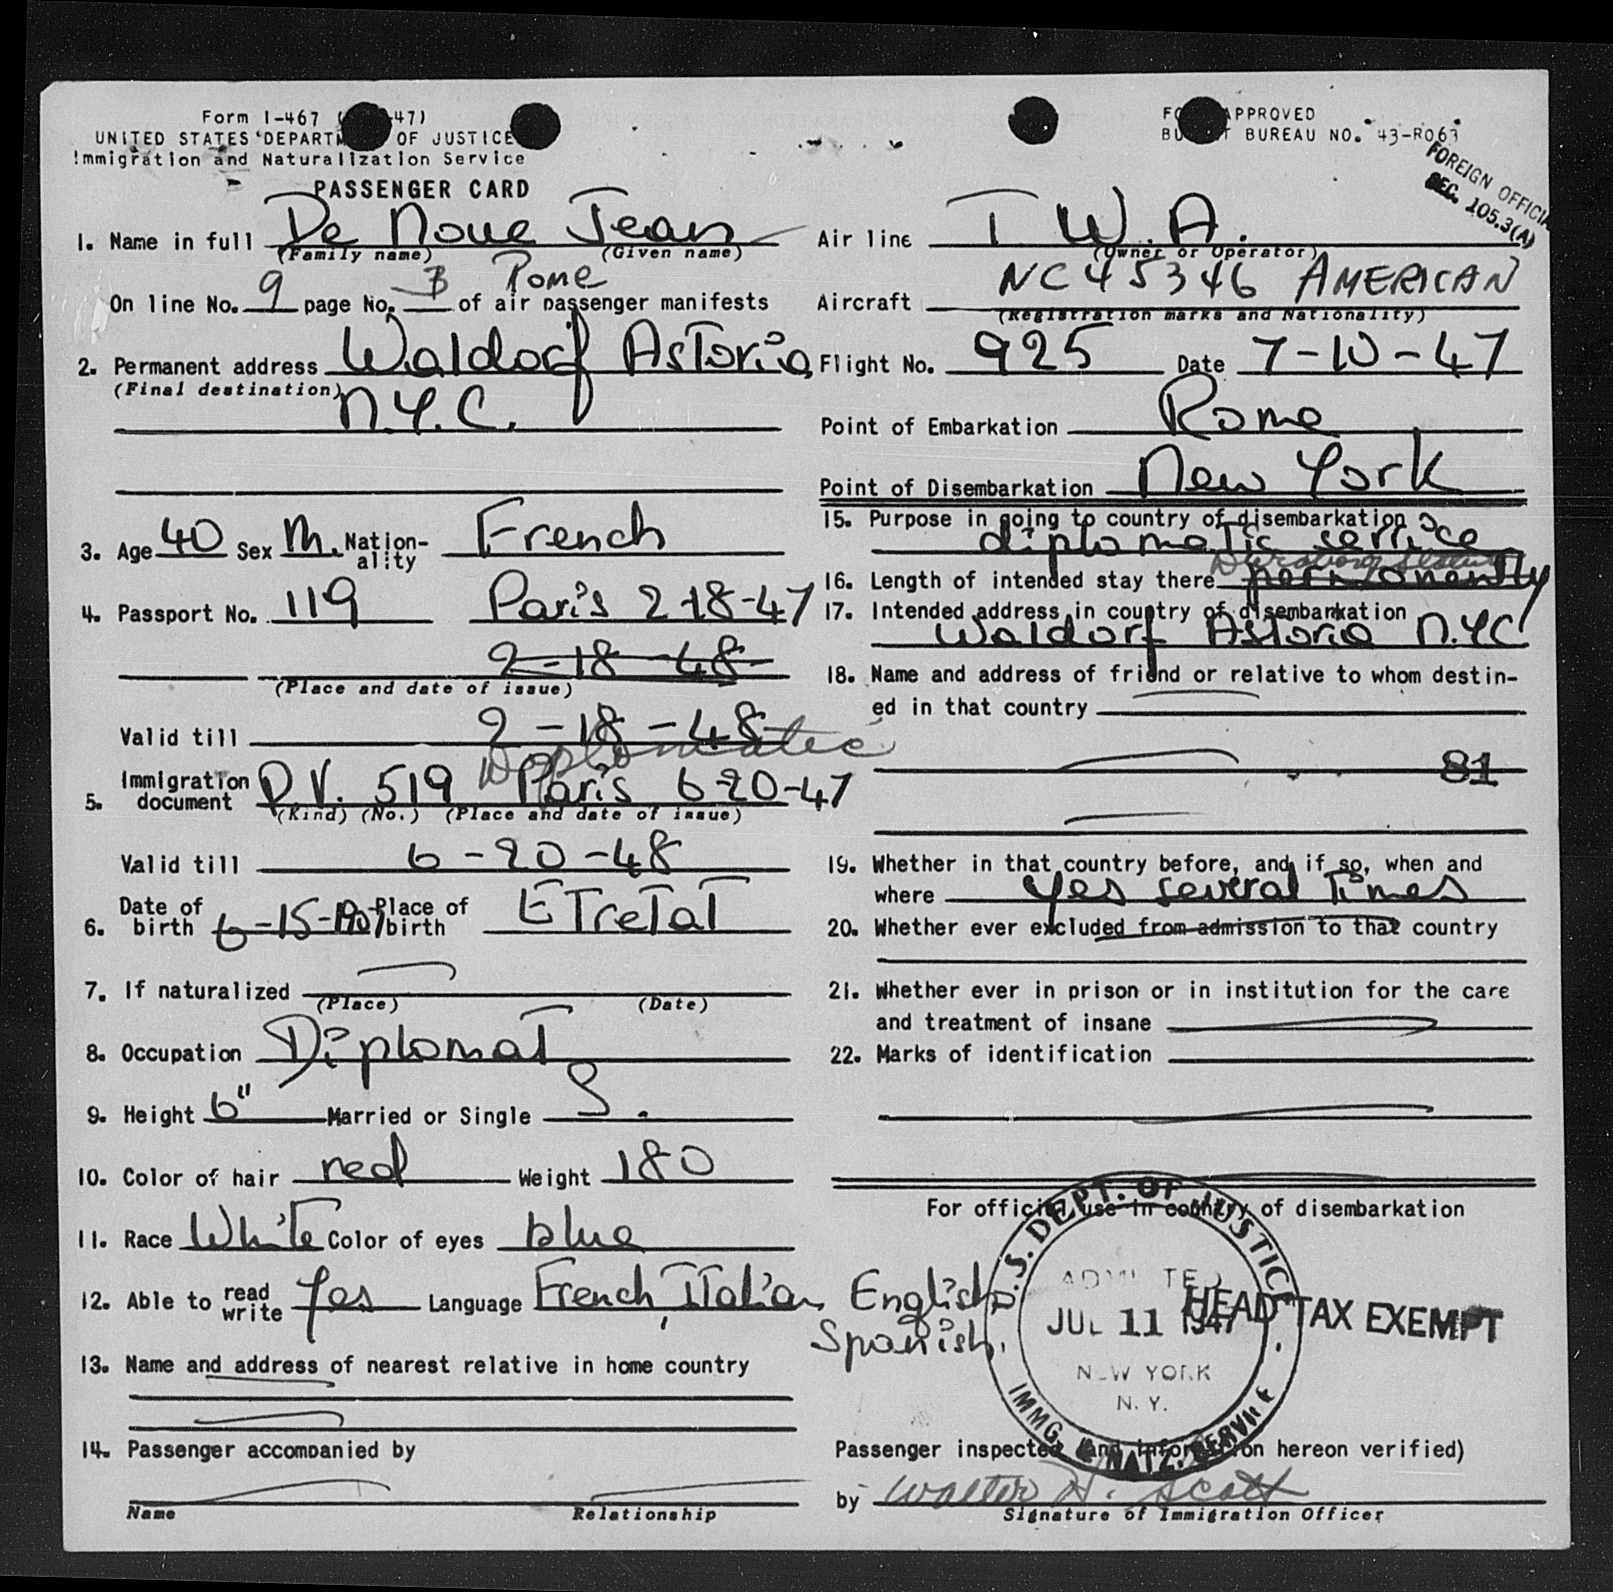 Form I-467 ( 47)
UNITED STATES DEPARTM OF JUSTICE
Immigration and Naturalization Service
PASSENGER CARD
1. Name in full De Noue Jean
(Family name) (Given name)
On line No. 9 page No. 3 of air passenger manifests
Rome
2. Permanent address Waldorf Astoria
(Final destination) N.Y.C.
3. Age 40 Sex M. Nation-ality French
4. Passport No. 119 Paris 2-18-47
2-18-48
(Place and date of issue)
Valid till 2-18-48
Diplomatic
5. Immigration document D.V. 519 Paris 6-20-47
(Kind) (No.) (Place and date of issue)
Valid till 6-20-48
6. Date of birth 6-15-1907 Place of birth ETreTaT
7. If naturalized
(Place) (Date)
8. Occupation Diplomat
9. Height 6" Married or Single S.
10. Color of hair red Weight 180
11. Race White Color of eyes blue
12. Able to read write Yes Language French, Italian English
Spanish.
13. Name and address of nearest relative in home country
14. Passenger accompanied by
Name Relationship
FO APPROVED
BU T BUREAU NO. 43-R063
FOREIGN OFFICIA
SEC. 105.3(A)
Air line T.W.A.
(Owner or Operator)
Aircraft NC45346 AMERICAN
(Registration marks and Nationality)
Flight No. 925 Date 7-10-47
Point of Embarkation Rome
Point of Disembarkation New York
15. Purpose in going to country of disembarkation
diplomatic service
16. Length of intended stay there permanently
17. Intended address in country of disembarkation
Waldorf Astoria N.Y.C
18. Name and address of friend or relative to whom destin-
ed in that country
81
19. Whether in that country before, and if so, when and
where yes several Times
20. Whether ever excluded from admission to that country
21. Whether ever in prison or in institution for the care
and treatment of insane
22. Marks of identification
For official use in country of disembarkation
U.S. DEPT. OF JUSTICE
ADMITTED
JUL 11 1947
NEW YORK
N.Y.
IMMG. & NATZ. SERVICE
HEAD TAX EXEMPT
Passenger inspected (and information hereon verified)
by Walter H. Scott
Signature of Immigration Officer